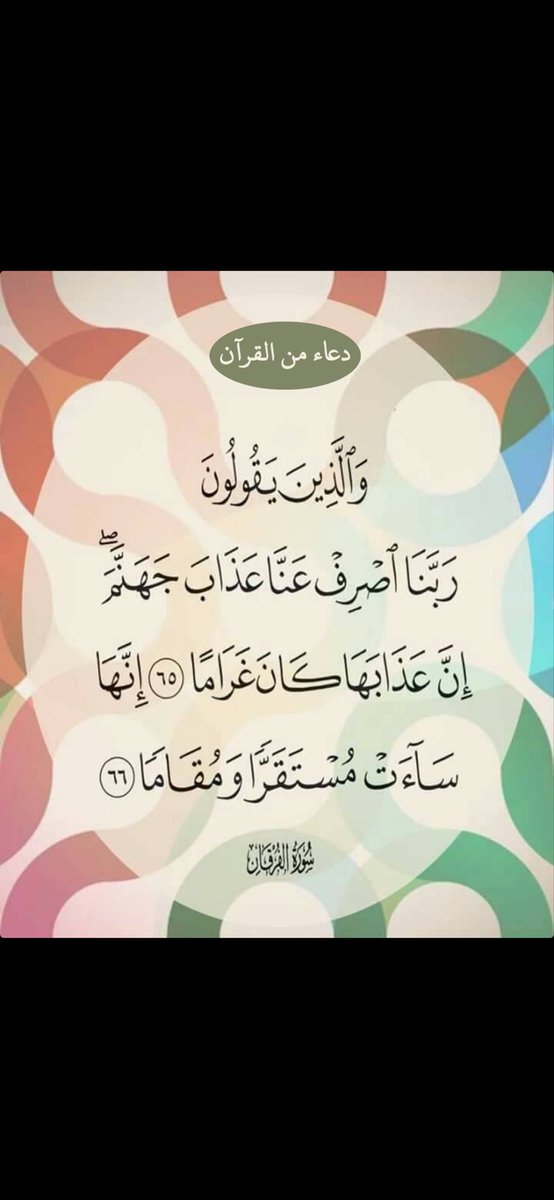 دعاء من القرآن
وَٱلَّذِينَ يَقُولُونَ
رَبَّنَا ٱصْرِفْ عَنَّا عَذَابَ جَهَنَّمَۖ
إِنَّ عَذَابَهَا كَانَ غَرَامًا ٦٥ إِنَّهَا
سَآءَتْ مُسْتَقَرًّا وَمُقَامًا ٦٦
سُورَةُ الفُرْقَانِ